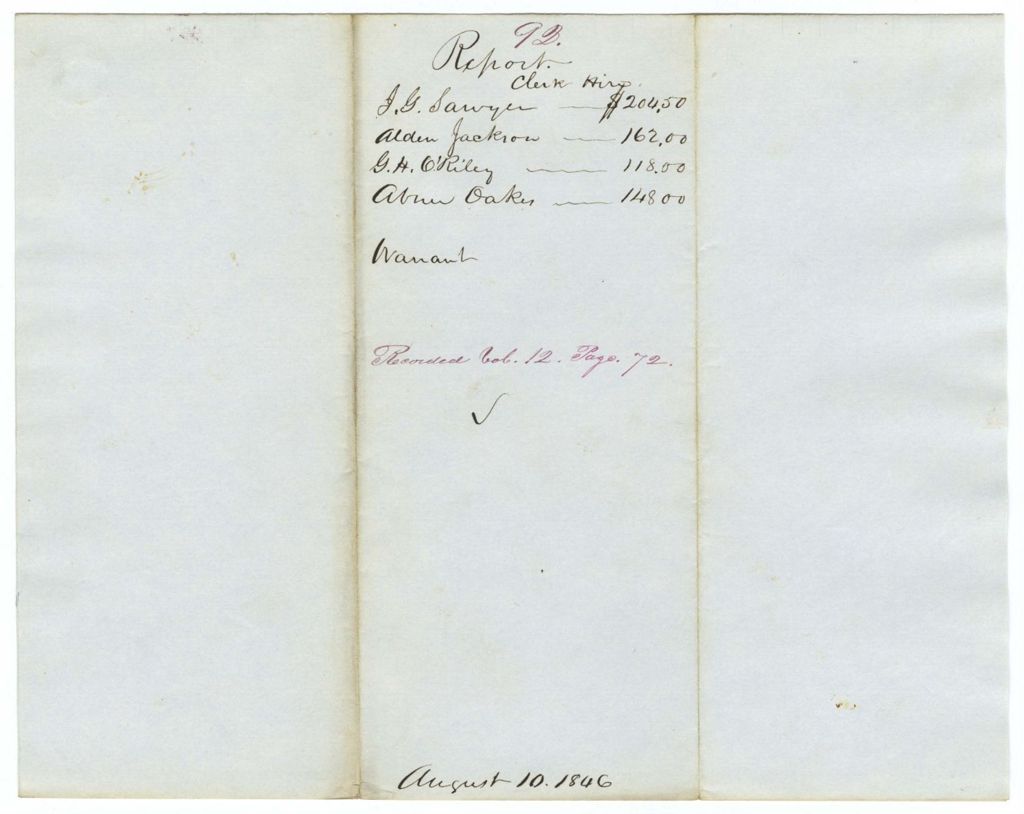 92.
Report.
Clerk Hire.
J. G. Sawyer — $204,50
Alden Jackson — 162,00
G. H. O'Riley — 118.00
Abner Oakes — 148 00
Warrant
Recorded Vol. 12. Page. 72.
August 10. 1846